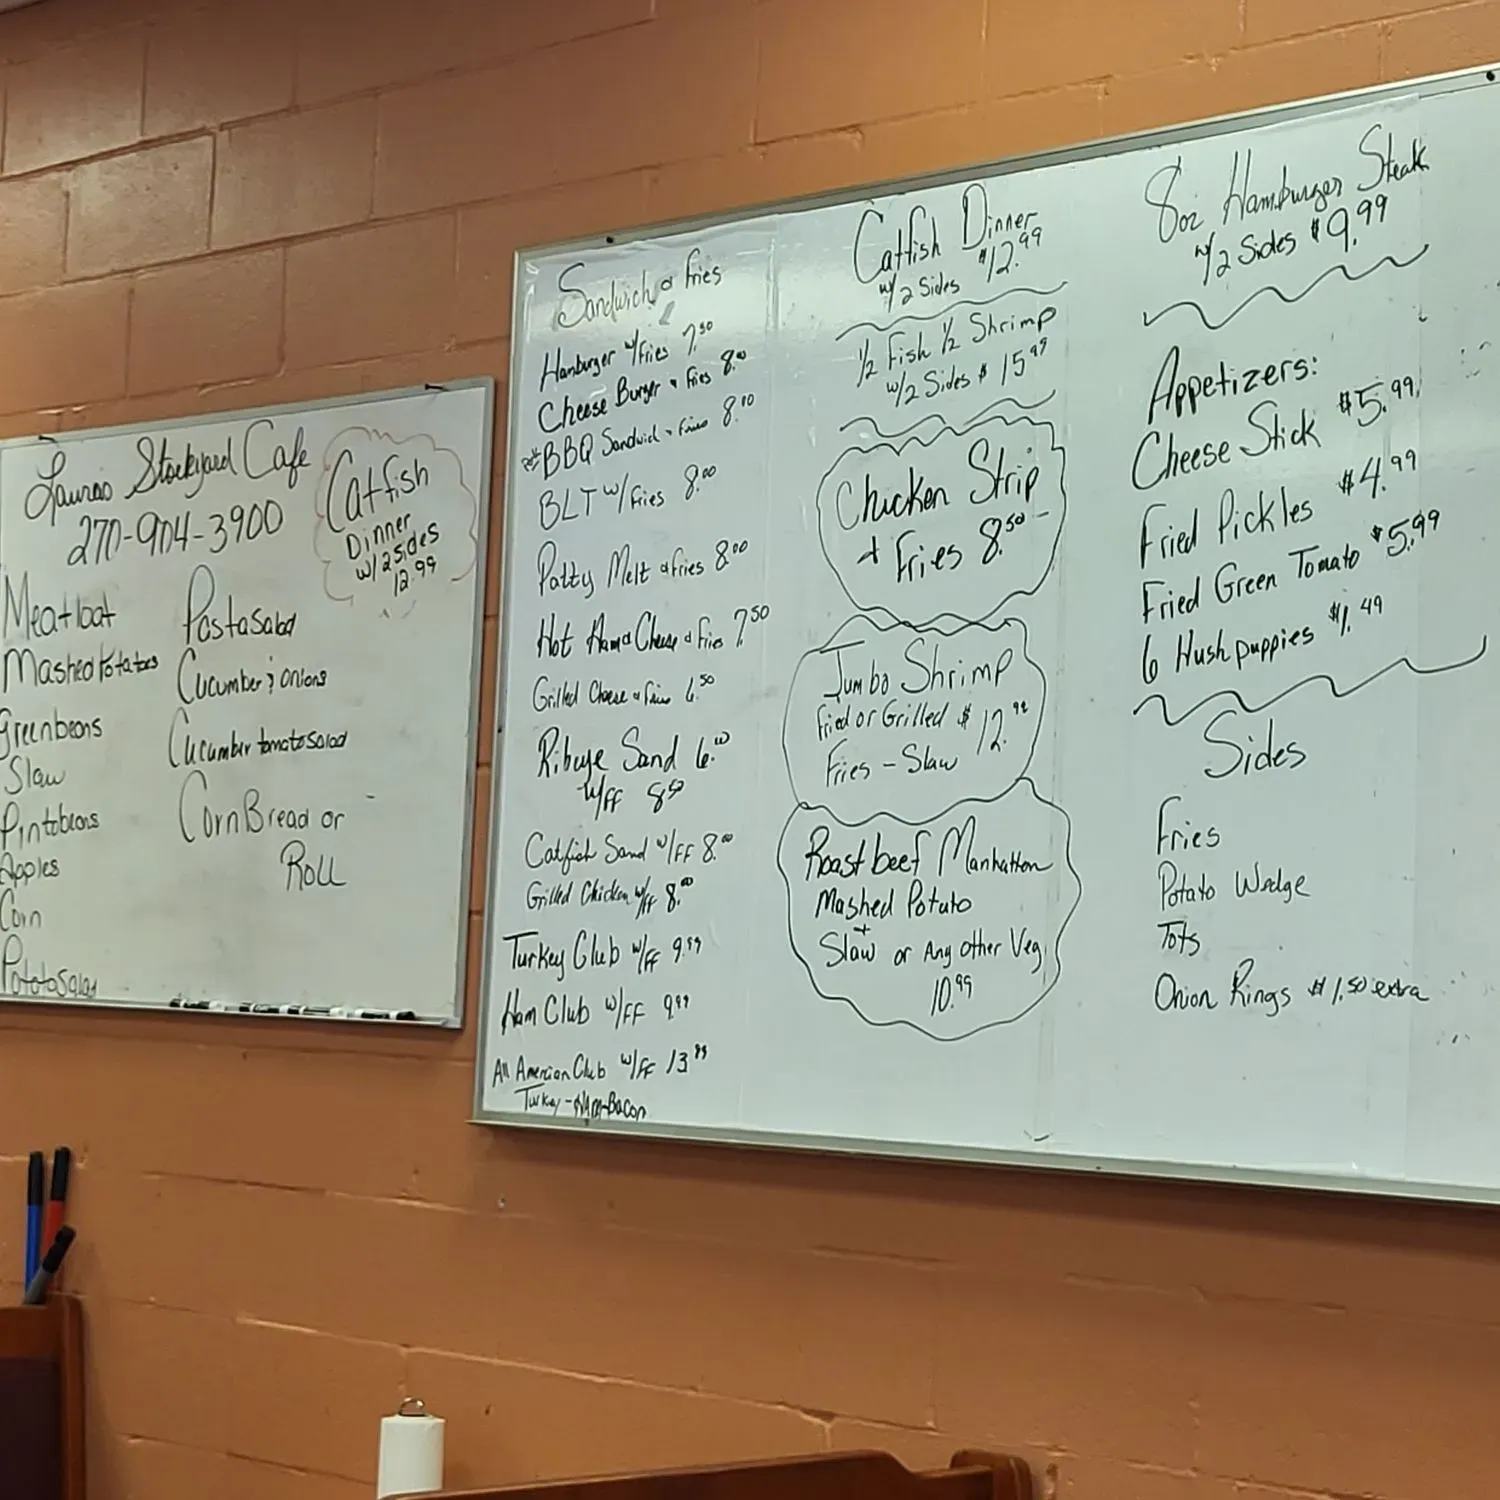 Laura's Stockyard Cafe
270-904-3900
Catfish
Dinner
w/2 sides
12.99
Meatloaf
Mashed Potatoes
Greenbeans
Slaw
Pintobeans
Apples
Corn
Potato Salad
Pasta Salad
Cucumber & Onions
Cucumber tomato Salad
Corn Bread or
Roll
Sandwich & Fries
Hamburger w/Fries 7.50
Cheese Burger & Fries 8.00
BBQ Sandwich & Fries 8.00
BLT w/Fries 8.00
Patty Melt & Fries 8.00
Hot Ham & Cheese & Fries 7.50
Grilled Cheese & Fries 6.50
Ribeye Sand 6.00
w/FF 8.50
Catfish Sand w/FF 8.00
Grilled Chicken w/FF 8.00
Turkey Club w/FF 9.99
Ham Club w/FF 9.99
All American Club w/FF 13.99
Turkey-Ham-Bacon
Catfish Dinner
w/2 Sides $12.99
1/2 Fish 1/2 Shrimp
w/2 Sides $15.99
Chicken Strip
+ Fries 8.50
Jumbo Shrimp
Fried or Grilled $12.99
Fries - Slaw
Roast beef Manhattan
Mashed Potato
+
Slaw or Any other Veg
10.99
8oz Hamburger Steak
w/2 Sides $9.99
Appetizers:
Cheese Stick $5.99
Fried Pickles $4.99
Fried Green Tomato $5.99
6 Hushpuppies $1.49
Sides
Fries
Potato Wedge
Tots
Onion Rings $1.50 extra